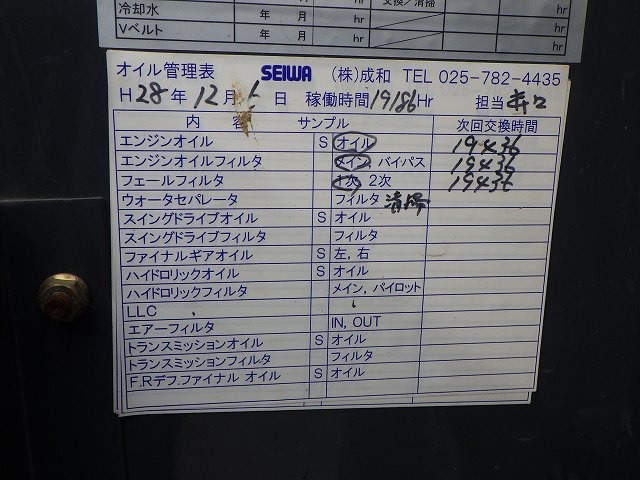 交換/清掃
hr
冷却水 年 月 hr hr
Vベルト 年 月 hr hr
オイル管理表 SEIWA (株)成和 TEL 025-782-4435
H28年12月6日 稼働時間19186Hr 担当
内 容 サンプル 次回交換時間
エンジンオイル S オイル 19436
エンジンオイルフィルタ メイン, バイパス 19436
フェールフィルタ 1次 2次 19436
ウォータセパレータ フィルタ 清掃
スイングドライブオイル S オイル
スイングドライブフィルタ フィルタ
ファイナルギアオイル S 左, 右
ハイドロリックオイル S オイル
ハイドロリックフィルタ メイン, パイロット
LLC
エアーフィルタ IN, OUT
トランスミッションオイル S オイル
トランスミッションフィルタ フィルタ
F.Rデフ.ファイナル オイル S オイル